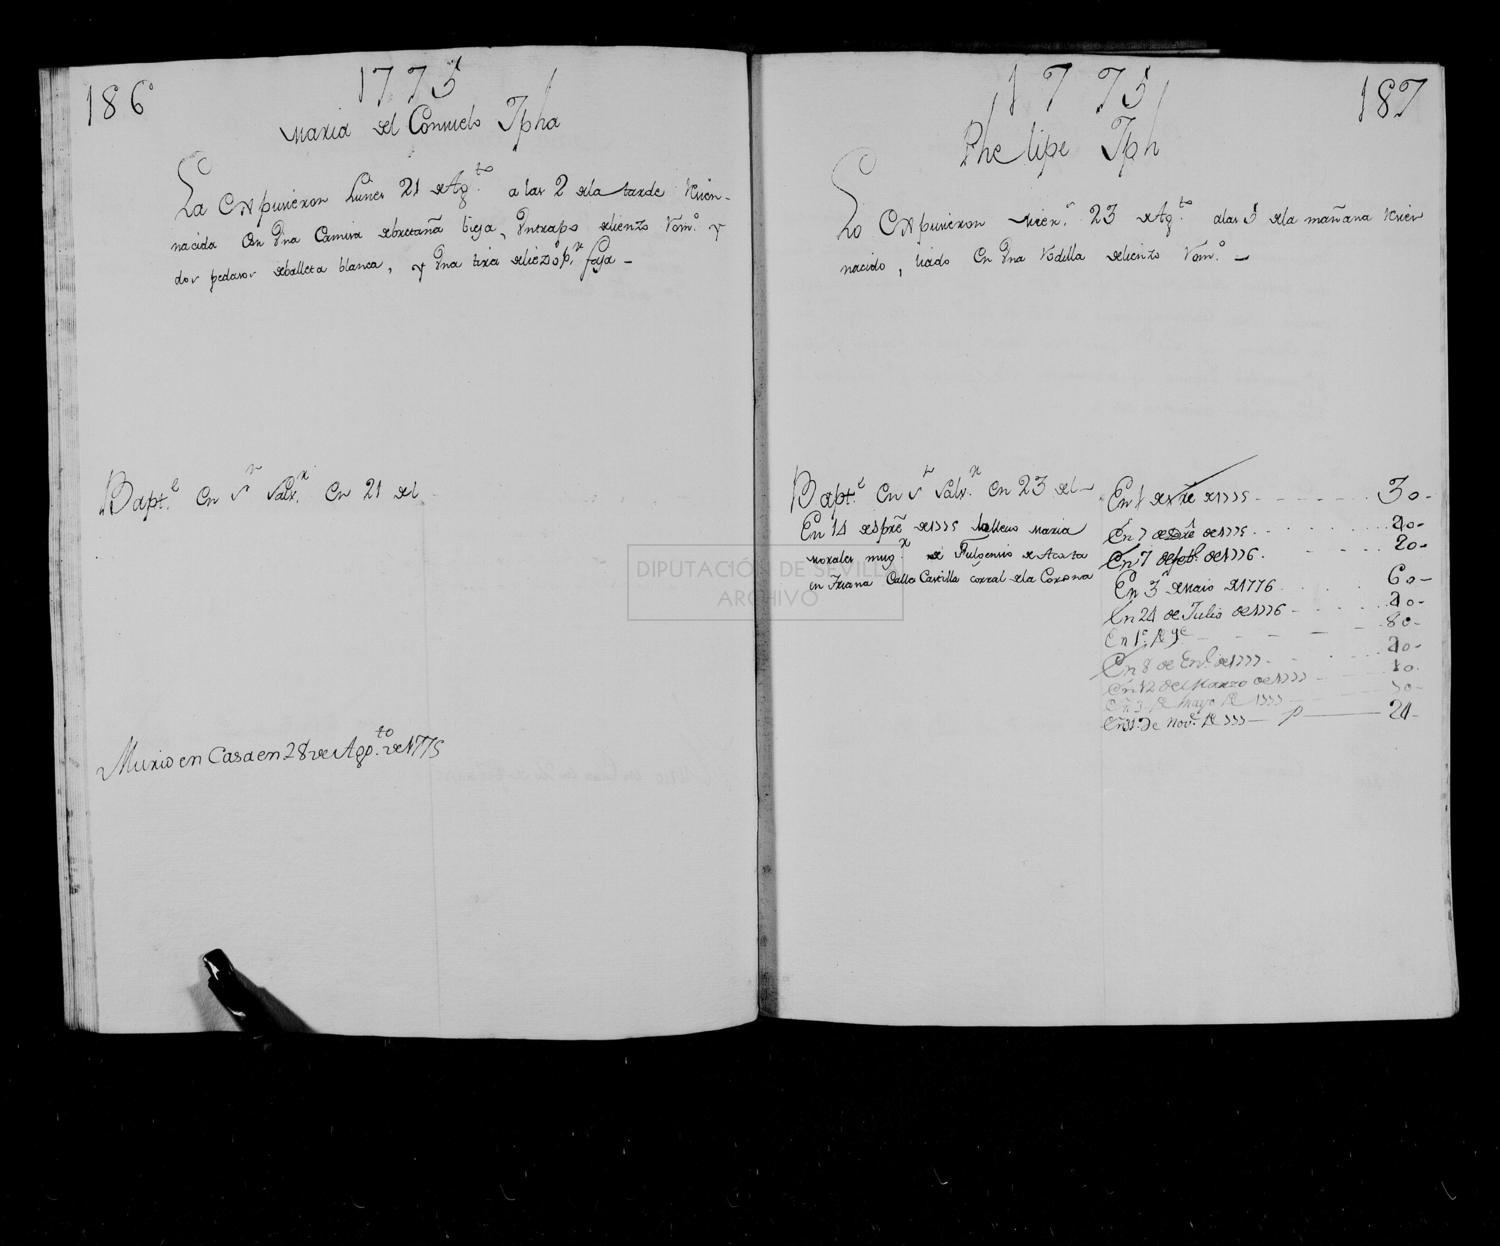 186
1775
Maria del Consuelo Jpha
La Expusieron Lunes 21 de Agto. a las 2 de la tarde Rezien-
nacida Con Una Camisa de bretaña bieja, Un trapo de lienzo Vom.o y
dos pedasos de balleta blanca, y Una tira de liezo pr. faja —
Bapt.e en Sr. Salvr. en 21 del
Murio en Casa en 28 de Agto. de 1775
1775
187
Phelipe Jph
Lo Expusieron Mierc.s 23 de Agto. a las 5 de la mañana Rezien
nacido, liado en Una Rodilla de lienzo Vom.o —
Bapt.e en Sr. Salvr. en 23 del —
En 14 de Spre de 1775 la llevo Maria
Morales mugr. de Fulgensio de Acosta
en Triana Calle Castilla corral de la Corona
En 1 de 1775 - - - - - - 30 -
En 7 de Dre de 1775 - - - - 20 -
En 7 de feb.o de 1776 - - - 20 -
En 3 de Maio de 1776 - - - 60 -
En 24 de Julio de 1776 - - - 20 -
En 1.o de - - - - 80 -
En 8 de En.o de 1777 - - - 20 -
En 12 de Marzo de 1777 - - -
En 3 de Mayo de 1777 - -
En 31 de Nov.e de 777 — p — 21 -
DIPUTACIÓN DE SEVILLA
ARCHIVO